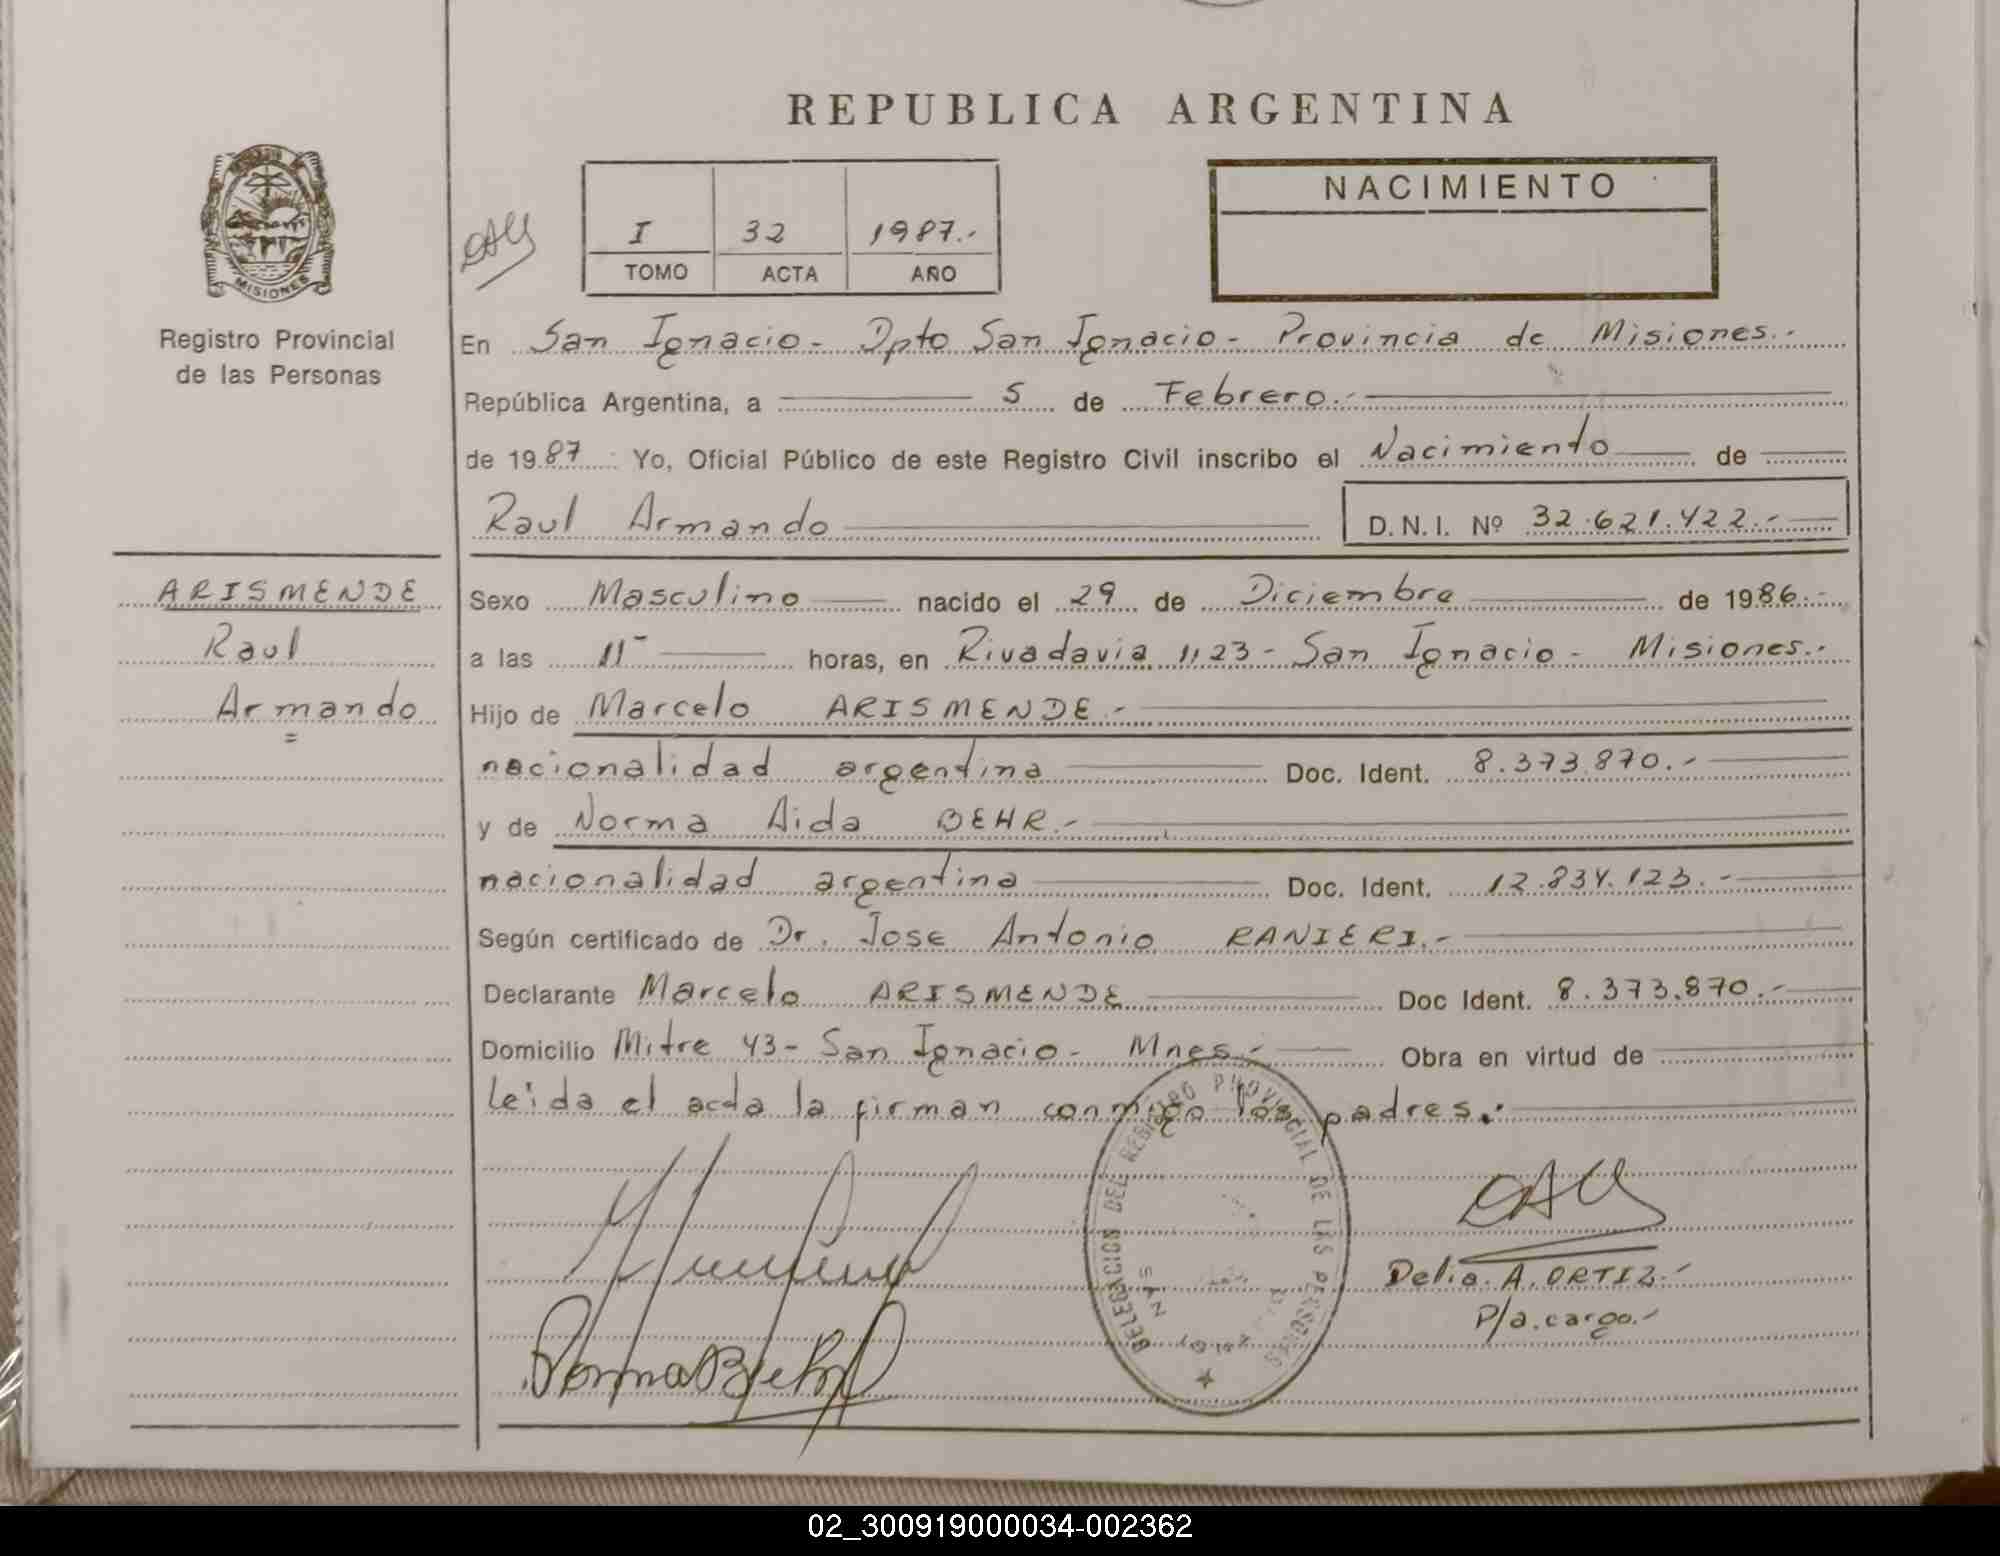 REPUBLICA ARGENTINA
MISIONES
Registro Provincial
de las Personas
I 32 1987.-
TOMO ACTA AÑO
NACIMIENTO
En San Ignacio - Dpto San Ignacio - Provincia de Misiones.-
República Argentina, a 5 de Febrero.-
de 1987 Yo, Oficial Público de este Registro Civil inscribo el Nacimiento de
Raul Armando D.N.I. Nº 32.621.422.-
ARISMENDE
Raul
Armando
Sexo Masculino nacido el 29 de Diciembre de 1986.-
a las 11 horas, en Rivadavia 1123 - San Ignacio - Misiones.-
Hijo de Marcelo ARISMENDE.-
nacionalidad argentina Doc. Ident. 8.373.870.-
y de Norma Aida BEHR.-
nacionalidad argentina Doc. Ident. 12.834.123.-
Según certificado de Dr. Jose Antonio RANIERI.-
Declarante Marcelo ARISMENDE Doc Ident. 8.373.870.-
Domicilio Mitre 43 - San Ignacio - Mnes.- Obra en virtud de
leida el acta la firman conmigo los padres.-
DELEGACION DEL REGISTRO PROVINCIAL DE LAS PERSONAS
SAN
Norma Behr
Delia A. ORTIZ.-
P/a.cargo.-
02_300919000034-002362